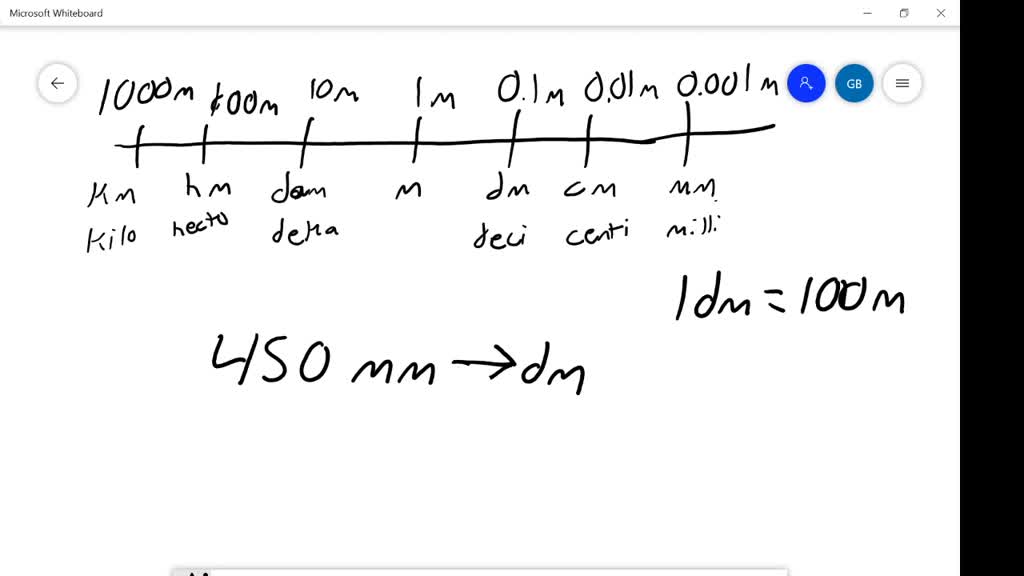 Microsoft Whiteboard
1000m 100m 10m 1m 0.1m 0.01m 0.001m
GB
Km hm dam m dm cm mm
Kilo hecto deka deci centi milli
1dm = 100m
450 mm → dm